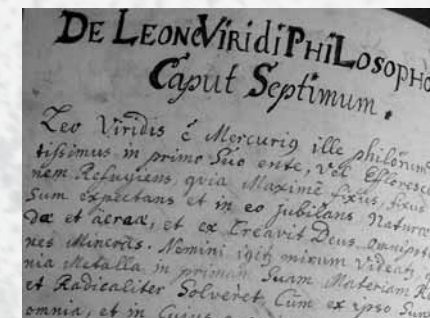 DE LEONE VIRIDI PHILOSOPHO
Caput Septimum.
Leo Viridis ē Mercuriq ille philorum
tissimus in primo Suo ente, vel Effloresc
nem Refugiens, quia Maximē fixus, fixus
Sum expectans et in eo jubilans Naturæ
dæ et aereæ, et ex Creavit Deus omnipot
nes Minerales. Nemini igitq mirum Videatq
nia Metalla in primam Suam Materiam
et Radicaliter Solveret, Cum ex ipso Sun
omnia, et in